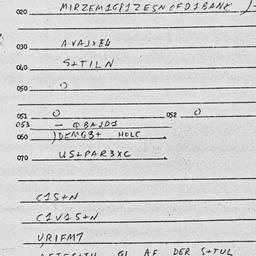 020 MIRZEM1G81ZESNOFD1BANK )-
030 AVAJXEL
040 S+TILN
050 0
051 0 052 0
053 — @BAJD1
060 )DEMG3+ HOLC
070 US+PAR3XC
C1S+N
C1V1S+N
VRIFM7
DER S+TUL